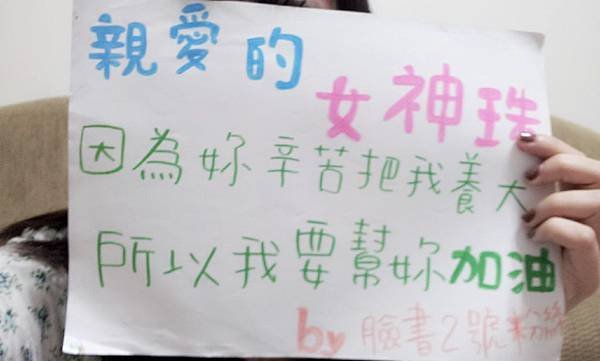 親愛的
女神珠
因為妳辛苦把我養大
所以我要幫妳加油
by 臉書2號粉絲